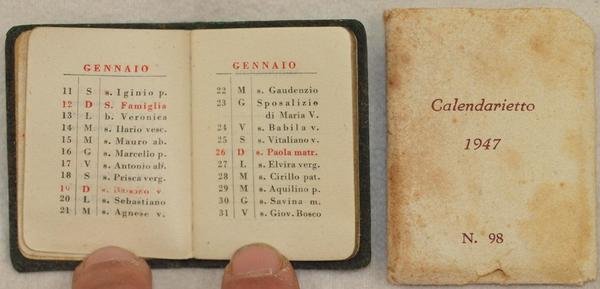 GENNAIO
11 S s. Iginio p.
12 D S. Famiglia
13 L b. Veronica
14 M s. Ilario vesc.
15 M s. Mauro ab.
16 G s. Marcello p.
17 V s. Antonio ab.
18 S s. Prisca verg.
19 D s.
20 L s. Sebastiano
21 M s. Agnese v.
GENNAIO
22 M s. Gaudenzio
23 G Sposalizio
di Maria V.
24 V s. Babila v.
25 S s. Vitaliano v.
26 D s. Paola matr.
27 L s. Elvira verg.
28 M s. Cirillo pat.
29 M s. Aquilino p.
30 G s. Savina m.
31 V s. Giov. Bosco
Calendarietto
1947
N. 98